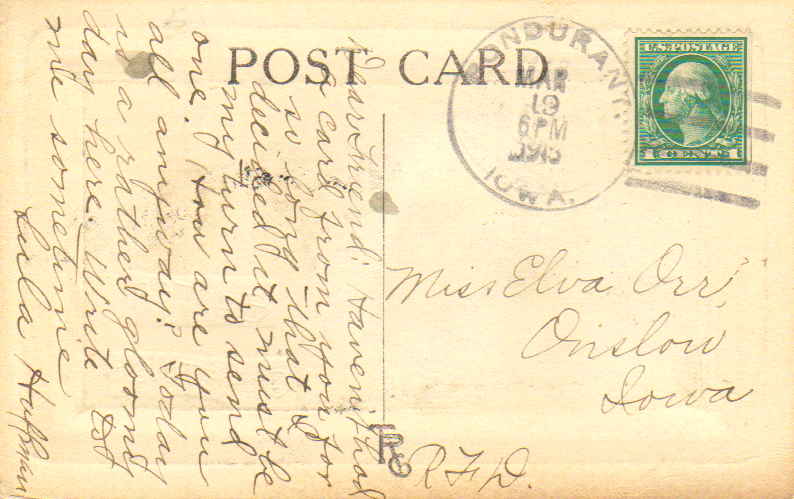 POST CARD
BONDURANT,
MAR
19
6PM
1915
IOWA.
U.S. POSTAGE
1 CENTS 1
Dear Friend: Haven't had
a card from you for
so long that I
decided it must be
my turn to send
one. How are you
all anyway? Today
is a rather gloomy
day here. Write
me sometime
Lula Huffman
Miss Elva Orr,
Onslow
Iowa
R.F.D.